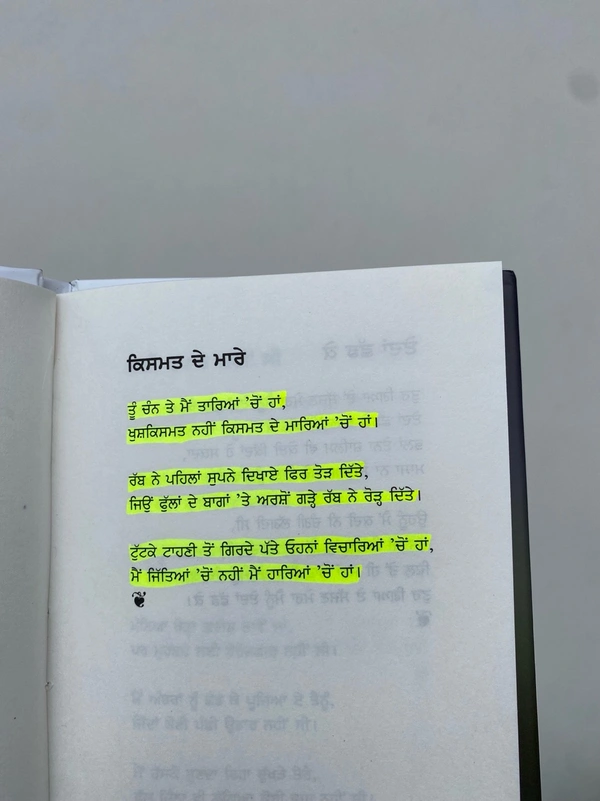 ਕਿਸਮਤ ਦੇ ਮਾਰੇ
ਤੂੰ ਚੰਨ ਤੇ ਮੈਂ ਤਾਰਿਆਂ ’ਚੋਂ ਹਾਂ,
ਖੁਸ਼ਕਿਸਮਤ ਨਹੀਂ ਕਿਸਮਤ ਦੇ ਮਾਰਿਆਂ ’ਚੋਂ ਹਾਂ।
ਰੱਬ ਨੇ ਪਹਿਲਾਂ ਸੁਪਨੇ ਦਿਖਾਏ ਫਿਰ ਤੋੜ ਦਿੱਤੇ,
ਜਿਉਂ ਫੁੱਲਾਂ ਦੇ ਬਾਗਾਂ ’ਤੇ ਅਰਸ਼ੋਂ ਗੜ੍ਹੇ ਰੱਬ ਨੇ ਰੋੜ੍ਹ ਦਿੱਤੇ।
ਟੁੱਟਕੇ ਟਾਹਣੀ ਤੋਂ ਗਿਰਦੇ ਪੱਤੇ ਓਹਨਾਂ ਵਿਚਾਰਿਆਂ ’ਚੋਂ ਹਾਂ,
ਮੈਂ ਜਿੱਤਿਆਂ ’ਚੋਂ ਨਹੀਂ ਮੈਂ ਹਾਰਿਆਂ ’ਚੋਂ ਹਾਂ।